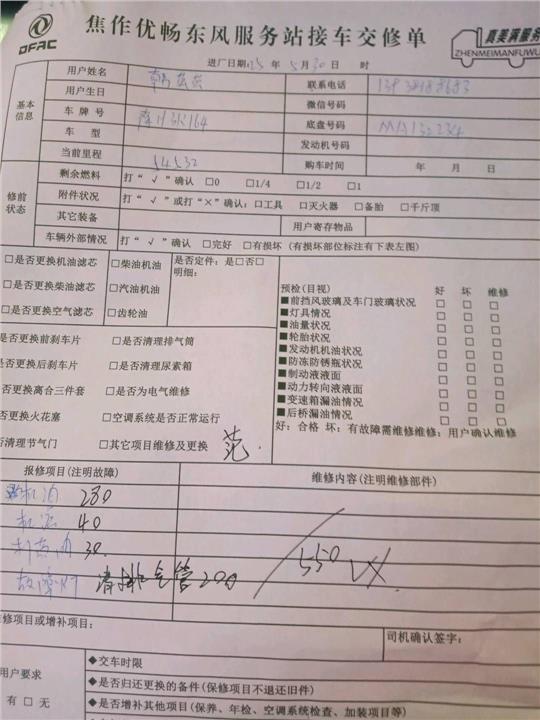 DFAC
焦作优畅东风服务站接车交修单
真美满服务
ZHENMEIMANFUWU
进厂日期:25 年 5 月 30 日 时
基本信息
用户姓名
联系电话
用户生日
微信号码
车 牌 号
底盘号码
车 型
发动机号码
当前里程 54532
购车时间 年 月 日
修前状态
剩余燃料 打“√”确认 □0 □1/4 □1/2 □1
附件状况 打“√”或打“×”确认:□工具 □灭火器 □备胎 □千斤顶
其它装备 用户寄存物品
车辆外部情况 打“√”确认 □完好 □有损坏 (有损坏部位标注有下表左图)
□是否更换机油滤芯 □柴油机油 是否定件: 是□否□
明细:
□是否更换柴油滤芯 □汽油机油
□是否更换空气滤芯 □齿轮油
预检(目视) 好 坏 维修
■前挡风玻璃及车门玻璃状况 □ □ □
■灯具情况 □ □ □
■油量状况 □ □ □
■轮胎状况 □ □ □
■发动机机油状况 □ □ □
■防冻防锈瓶状况 □ □ □
■制动液液面 □ □ □
■动力转向液液面 □ □ □
■变速箱漏油情况 □ □ □
■后桥漏油情况 □ □ □
好: 合格 坏: 有故障需维修维修: 用户确认维修
是否更换前刹车片 □是否清理排气筒
是否更换后刹车片 □是否清理尿素箱
是否更换离合三件套 □是否为电气维修
否更换火花塞 □空调系统是否正常运行
否清理节气门 □其它项目维修及更换 范.
报修项目(注明故障) 维修内容(注明维修部件)
机油 280
机滤 40
30.
故障灯 清排气管200
550 VX.
修项目或增补项目:
司机确认签字:
用户要求
有 □ 无
◆交车时限
◆是否归还更换的备件(保修项目不退还旧件)
◆是否增补其他项目(保养、年检、空调系统检查、加装项目等)